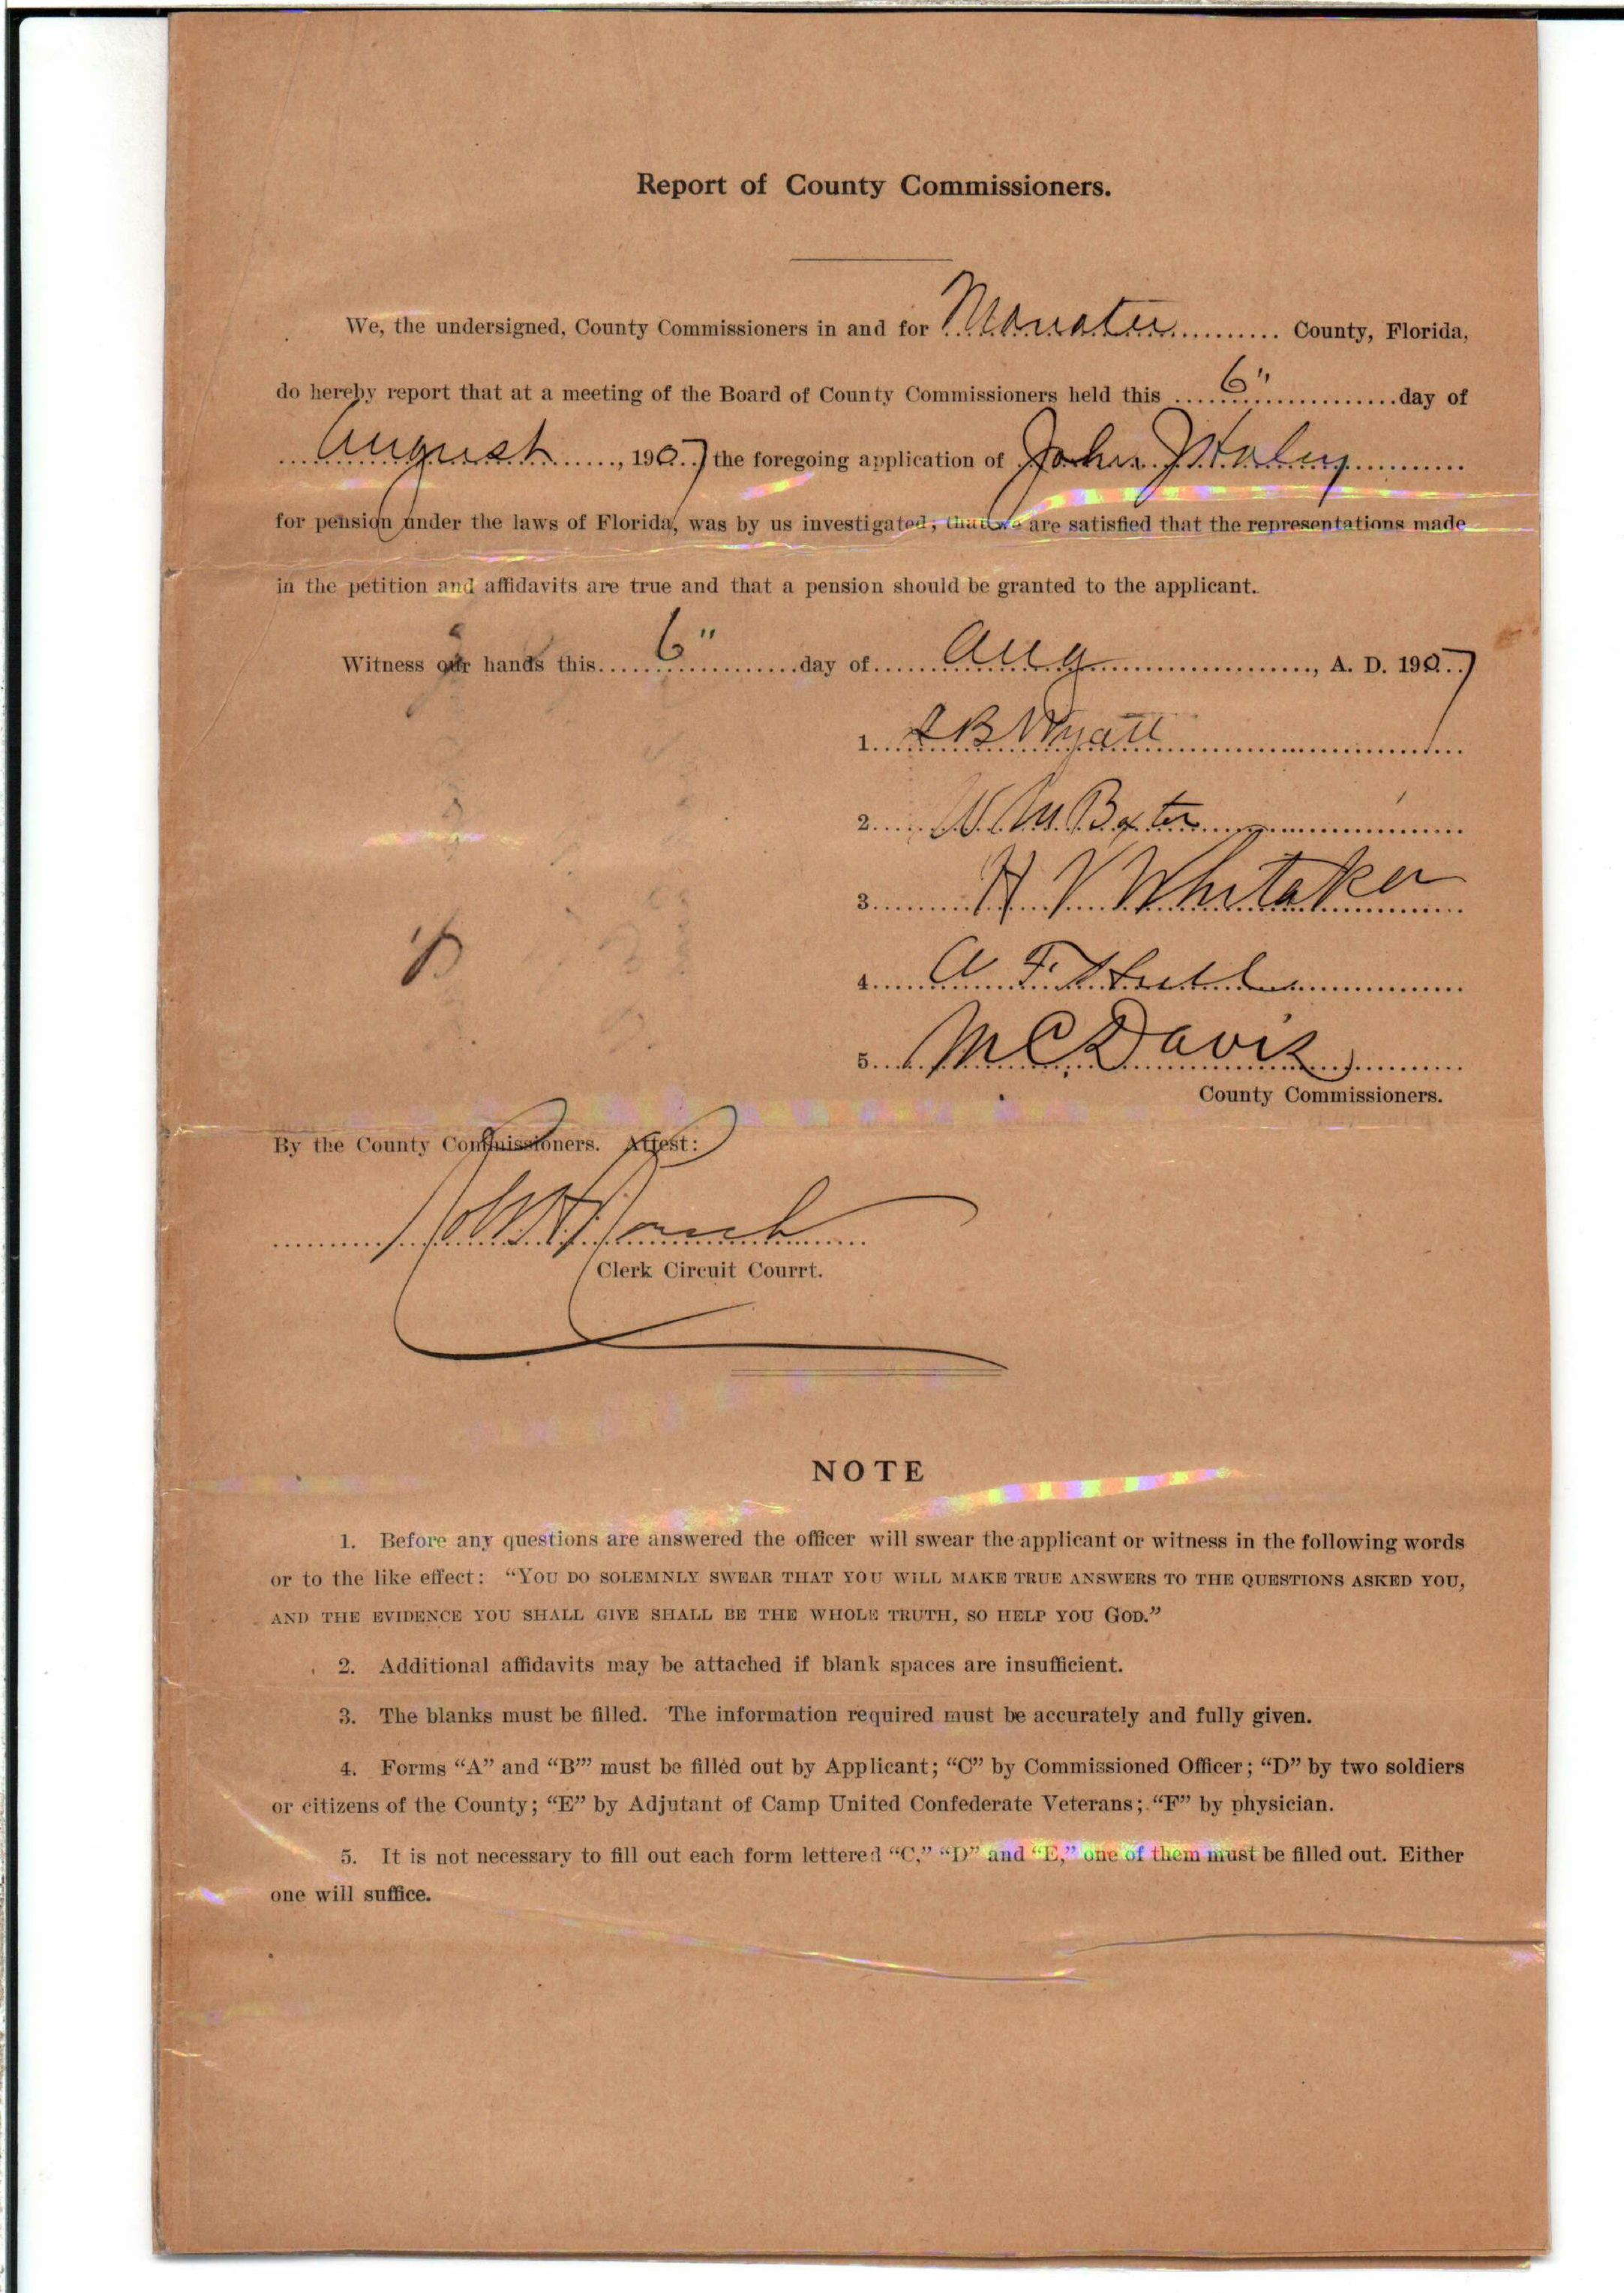 Report of County Commissioners.
We, the undersigned, County Commissioners in and for Manatee County, Florida,
do hereby report that at a meeting of the Board of County Commissioners held this 6" day of
August, 1907 the foregoing application of John J
for pension under the laws of Florida, was by us investigated; that we are satisfied that the representations made
in the petition and affidavits are true and that a pension should be granted to the applicant.
Witness our hands this 6" day of Aug, A. D. 1907
1. B Wyatt
2. W. M. Baxter
3. H V Whitaker
4. A F.
5. M C Davis
County Commissioners.
By the County Commissioners. Attest:
Clerk Circuit Courrt.
NOTE
1. Before any questions are answered the officer will swear the applicant or witness in the following words
or to the like effect: “YOU DO SOLEMNLY SWEAR THAT YOU WILL MAKE TRUE ANSWERS TO THE QUESTIONS ASKED YOU,
AND THE EVIDENCE YOU SHALL GIVE SHALL BE THE WHOLE TRUTH, SO HELP YOU GOD.”
2. Additional affidavits may be attached if blank spaces are insufficient.
3. The blanks must be filled. The information required must be accurately and fully given.
4. Forms “A” and “B’” must be filled out by Applicant; “C” by Commissioned Officer; “D” by two soldiers
or citizens of the County; “E” by Adjutant of Camp United Confederate Veterans; “F” by physician.
5. It is not necessary to fill out each form lettered “C,” “D” and “E,” one of them must be filled out. Either
one will suffice.